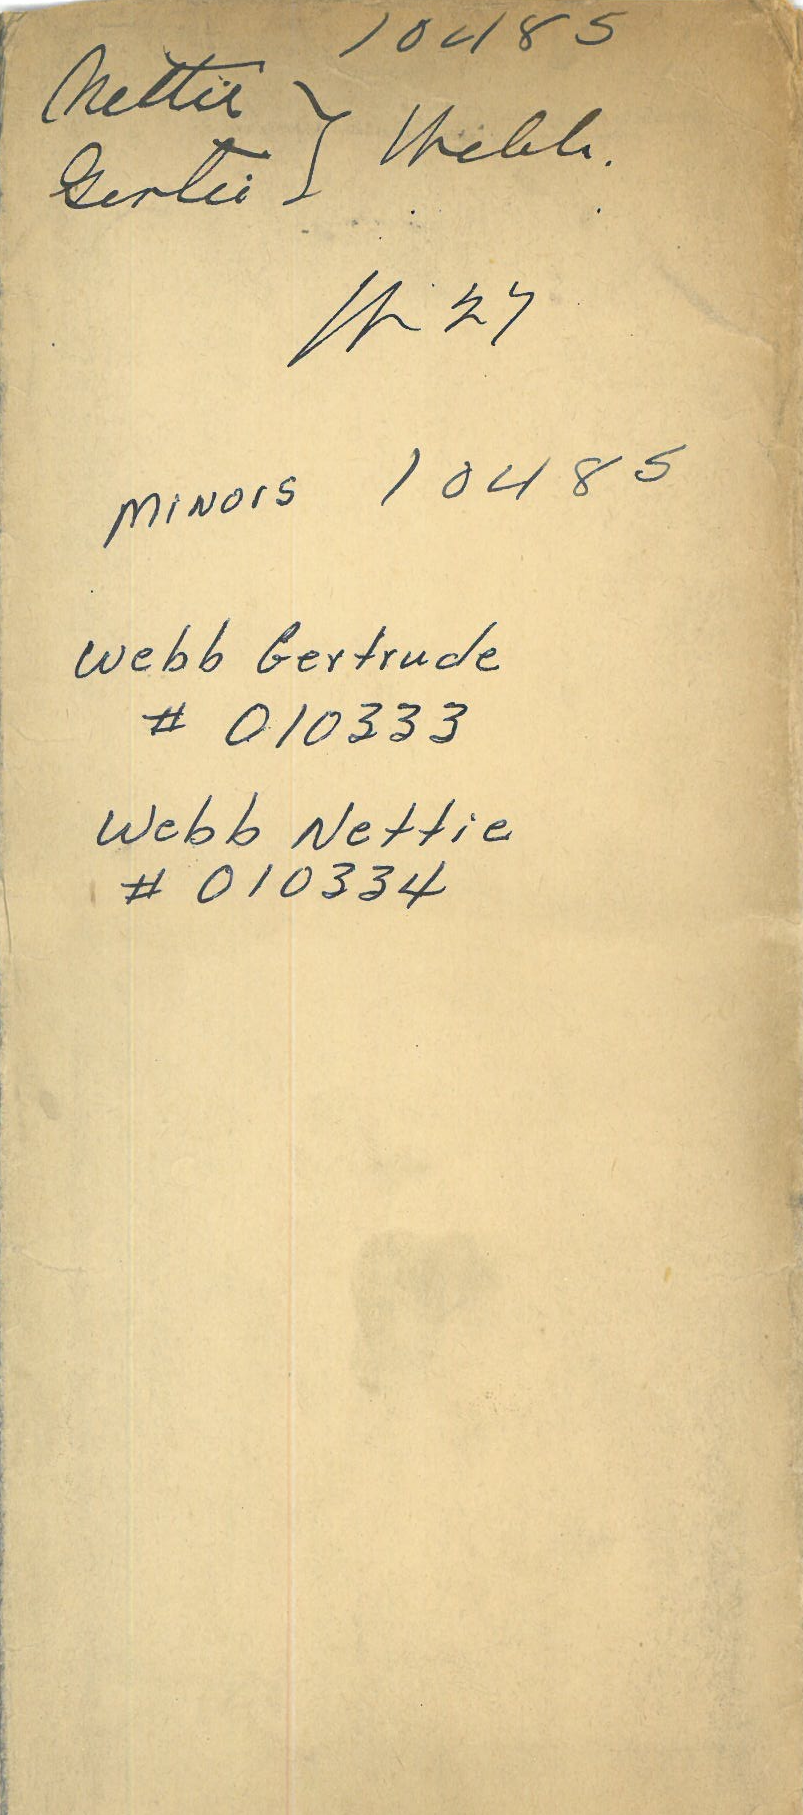 10485
Nettie
Gertie } Webb.
27
Minors 10485
Webb Gertrude
# 010333
Webb Nettie
# 010334